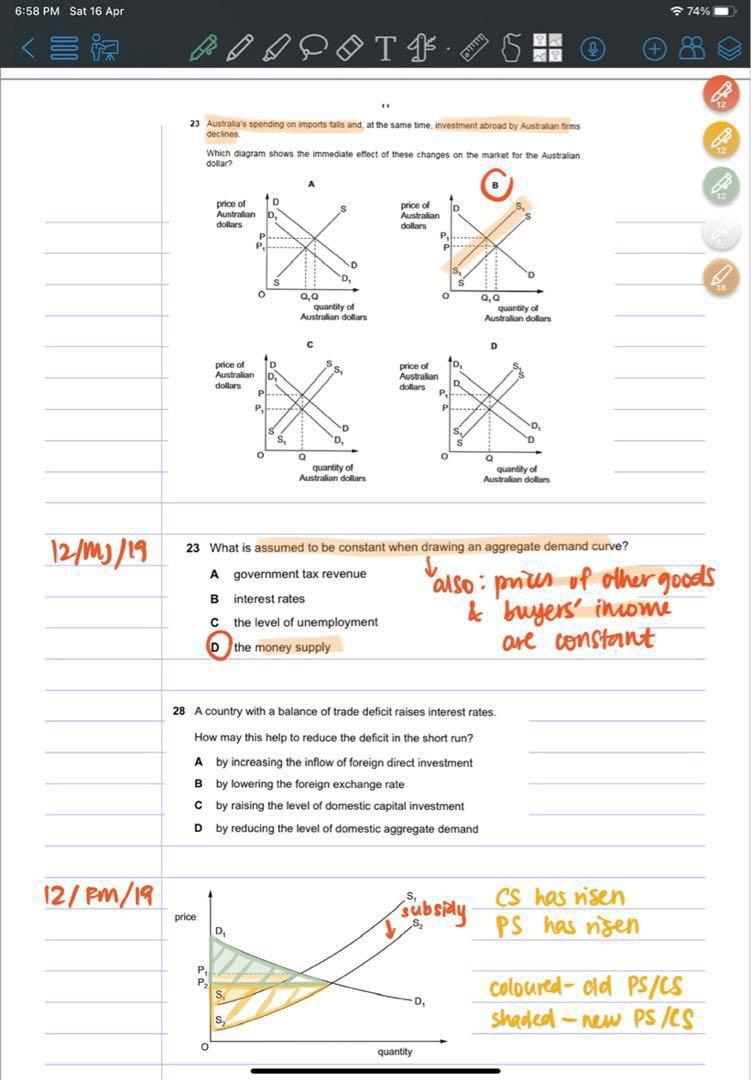 6:58 PM Sat 16 Apr
74%
T
12
12
12
18
23 Australia's spending on imports falls and, at the same time, investment abroad by Australian firms
declines.
Which diagram shows the immediate effect of these changes on the market for the Australian
dollar?
A
price of
Australian
dollars
D
D₁
S
P
P₁
D
D₁
S
O
Q₁ Q
quantity of
Australian dollars
B
price of
Australian
dollars
D
S₁
S
P₁
P
S₁
S
D
O
Q₁ Q
quantity of
Australian dollars
C
price of
Australian
dollars
D
D₁
S
S₁
P
P₁
S
S₁
D
D₁
O
Q
quantity of
Australian dollars
D
price of
Australian
dollars
D₁
D
S₁
S
P₁
P
S₁
S
D₁
D
O
Q
quantity of
Australian dollars
12/MJ/19
23 What is assumed to be constant when drawing an aggregate demand curve?
A government tax revenue
B interest rates
C the level of unemployment
D the money supply
also: prices of other goods
& buyers' income
are constant
28 A country with a balance of trade deficit raises interest rates.
How may this help to reduce the deficit in the short run?
A by increasing the inflow of foreign direct investment
B by lowering the foreign exchange rate
C by raising the level of domestic capital investment
D by reducing the level of domestic aggregate demand
12/FM/19
price
D₁
S₁
subsidy
S₂
P₁
P₂
S₁
S₂
D₁
O
quantity
CS has risen
PS has risen
coloured - old PS/CS
shaded - new PS/CS